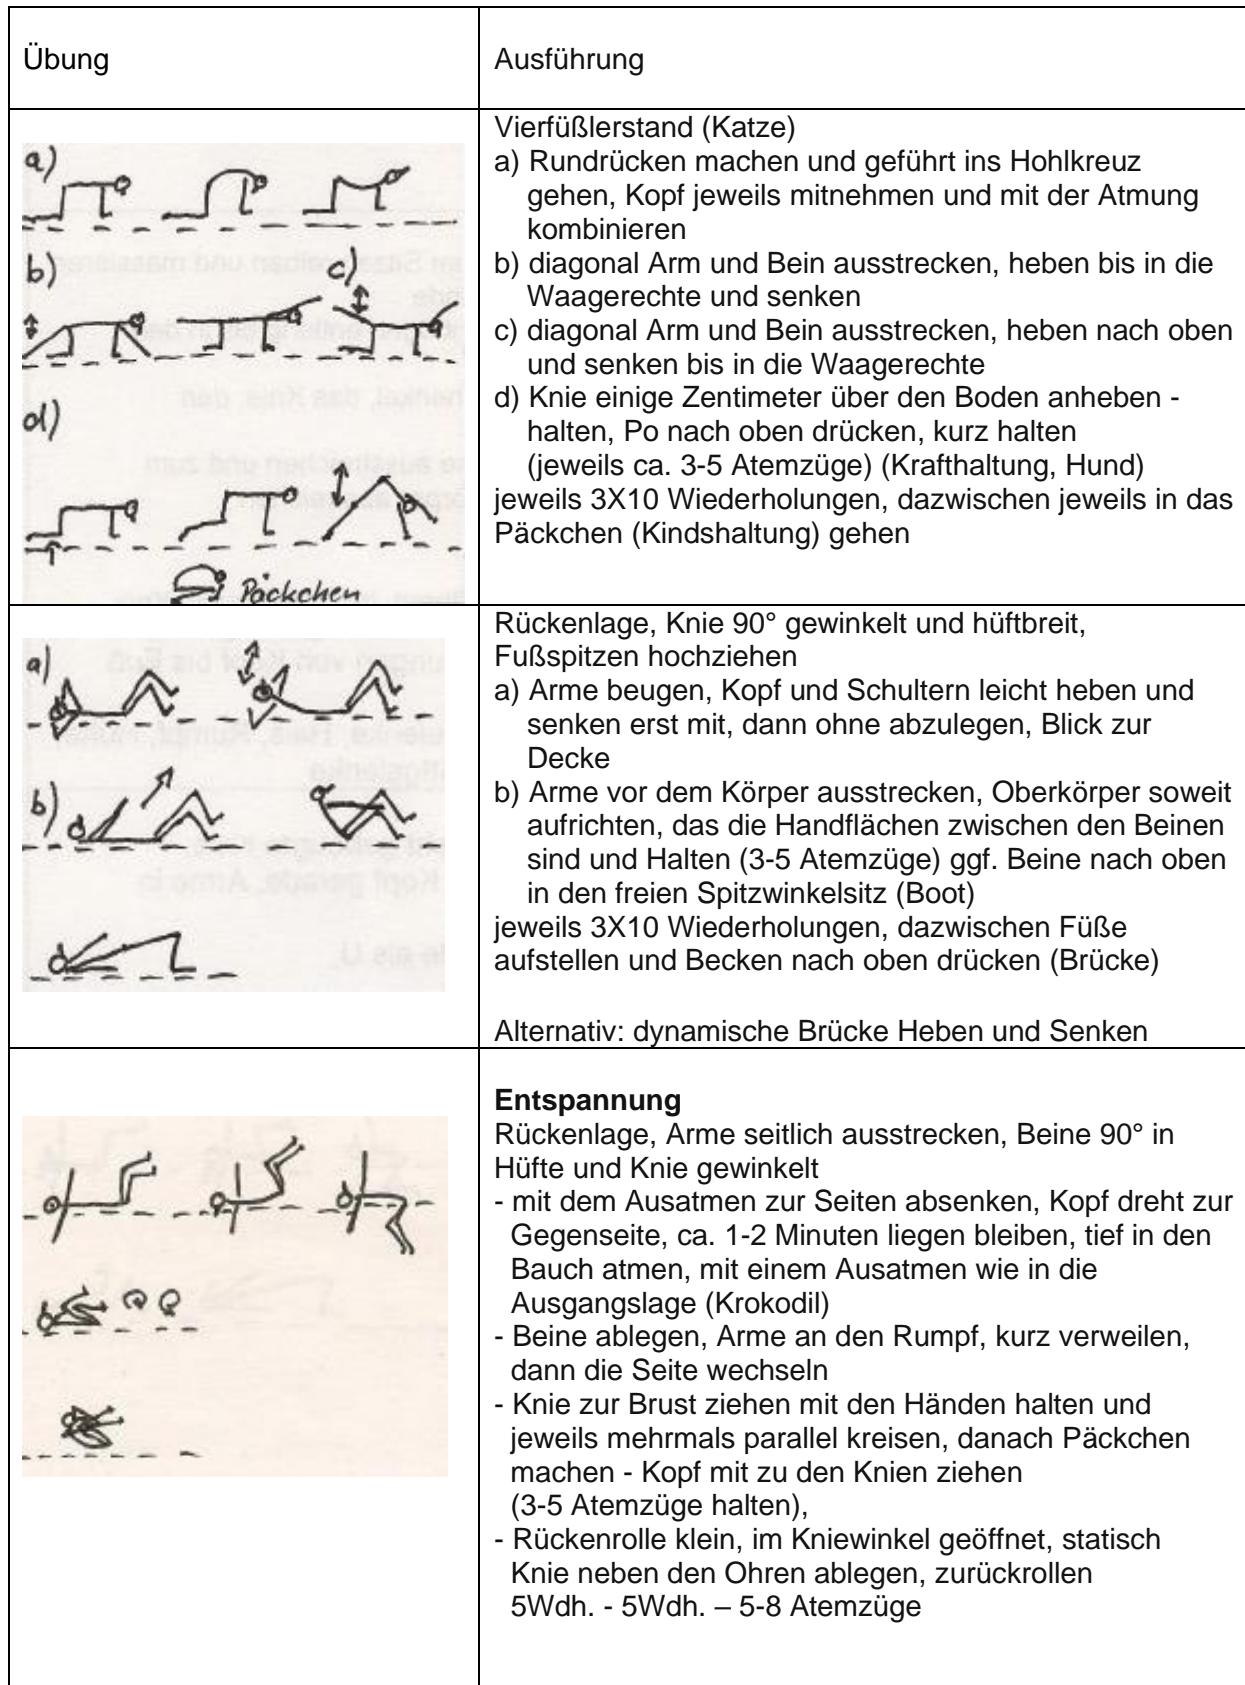 Übung
Ausführung
a)
b)
c)
d)
Päckchen
Vierfüßlerstand (Katze)
a) Rundrücken machen und geführt ins Hohlkreuz
gehen, Kopf jeweils mitnehmen und mit der Atmung
kombinieren
b) diagonal Arm und Bein ausstrecken, heben bis in die
Waagerechte und senken
c) diagonal Arm und Bein ausstrecken, heben nach oben
und senken bis in die Waagerechte
d) Knie einige Zentimeter über den Boden anheben -
halten, Po nach oben drücken, kurz halten
(jeweils ca. 3-5 Atemzüge) (Krafthaltung, Hund)
jeweils 3X10 Wiederholungen, dazwischen jeweils in das
Päckchen (Kindshaltung) gehen
a)
b)
Rückenlage, Knie 90° gewinkelt und hüftbreit,
Fußspitzen hochziehen
a) Arme beugen, Kopf und Schultern leicht heben und
senken erst mit, dann ohne abzulegen, Blick zur
Decke
b) Arme vor dem Körper ausstrecken, Oberkörper soweit
aufrichten, das die Handflächen zwischen den Beinen
sind und Halten (3-5 Atemzüge) ggf. Beine nach oben
in den freien Spitzwinkelsitz (Boot)
jeweils 3X10 Wiederholungen, dazwischen Füße
aufstellen und Becken nach oben drücken (Brücke)
Alternativ: dynamische Brücke Heben und Senken
Entspannung
Rückenlage, Arme seitlich ausstrecken, Beine 90° in
Hüfte und Knie gewinkelt
- mit dem Ausatmen zur Seiten absenken, Kopf dreht zur
Gegenseite, ca. 1-2 Minuten liegen bleiben, tief in den
Bauch atmen, mit einem Ausatmen wie in die
Ausgangslage (Krokodil)
- Beine ablegen, Arme an den Rumpf, kurz verweilen,
dann die Seite wechseln
- Knie zur Brust ziehen mit den Händen halten und
jeweils mehrmals parallel kreisen, danach Päckchen
machen - Kopf mit zu den Knien ziehen
(3-5 Atemzüge halten),
- Rückenrolle klein, im Kniewinkel geöffnet, statisch
Knie neben den Ohren ablegen, zurückrollen
5Wdh. - 5Wdh. – 5-8 Atemzüge